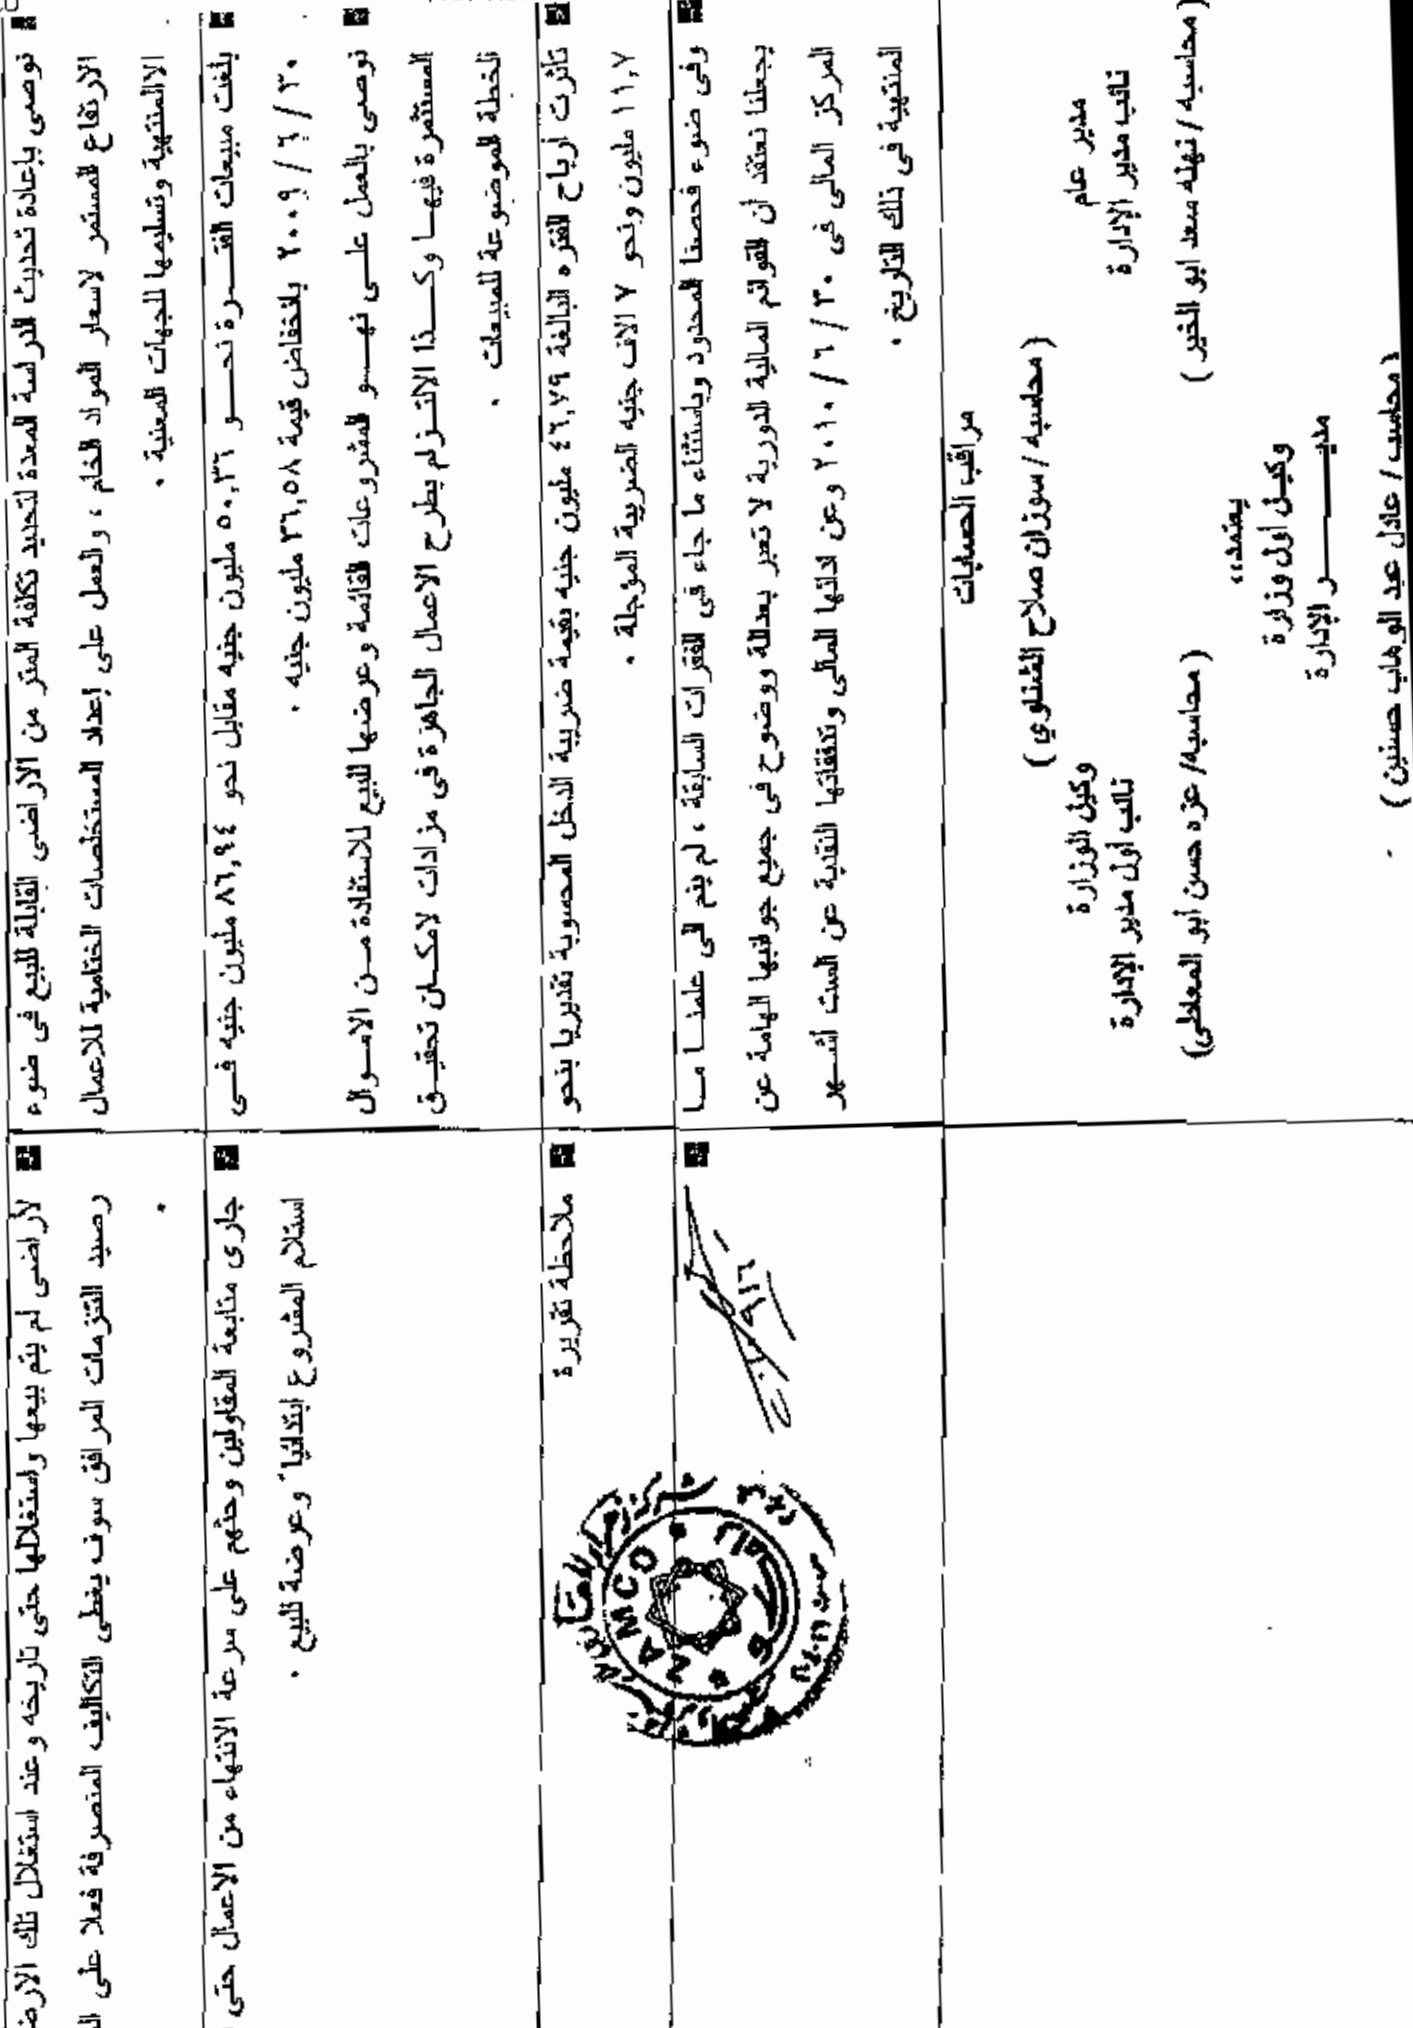 توصى بإعادة تحديث الدراسة المعدة لتحديد تكلفة المتر من الاراضى القابلة للبيع فى ضوء
الارتفاع المستمر لاسعار المواد الخام ، والعمل على إعداد المستخلصات الختامية للاعمال
الاالمنتهية وتسليمها للجهات المعنية .
لأراضى لم يتم بيعها واستغلالها حتى تاريخه وعند استغلال تلك الارض
رصيد التزمات المرافق سوف يغطى التكاليف المنصرفة فعلا على
.
بلغت مبيعات الفترة نحو ٥٠,٣٦ مليون جنيه مقابل نحو ٨٦,٩٤ مليون جنيه فى
٣٠ / ٦ / ٢٠٠٩ بانخفاض قيمة ٣٦,٥٨ مليون جنيه .
توصى بالعمل على نهو المشروعات القائمة وعرضها للبيع للاستفادة من الاموال
المستثمرة فيها وكذا الالتزلم بطرح الاعمال الجاهزة فى مزادات لامكان تحقيق
الخطة الموضوعة للمبيعات .
جارى متابعة المقاولين وحثهم على سرعة الانتهاء من الاعمال حتى
استلام المشروع ابتدائيا وعرضة للبيع .
تاثرت ارباح الفتره البالغة ٤٦,٧٩ مليون جنيه بقيمة ضريبة الدخل المحسوبة تقديريا بنحو
١١,٧ مليون ونحو ٧ الاف جنيه الضريبة المؤجلة .
ملاحظة تقريرة
وفى ضوء فحصنا المحدود وباستثناء ما جاء فى الفقرات السابقة ، لم ينم الى علمنا ما
يجعلنا نعتقد أن القوائم المالية الدورية لا تعبر بعدالة ووضوح فى جميع جوانبها الهامة عن
المركز المالى فى ٣٠ / ٦ / ٢٠١٠ وعن ادائها المالى وتدفقاتها النقدية عن الست أشهر
المنتهية فى ذلك التاريخ .
ZAMCO
مراقب الحسابات
( محاسبه / سوزان صلاح الشناوي )
مدير عام
نائب مدير الإدارة
( محاسبه / نهله سعد ابو الخير )
وكيل الوزارة
نائب أول مدير الإدارة
(محاسبه/ عزه حسن أبو المعاطى)
يعتمد،،
وكيل أول وزارة
مدير الإدارة
( محاسب / عادل عبد الوهاب حسنين )